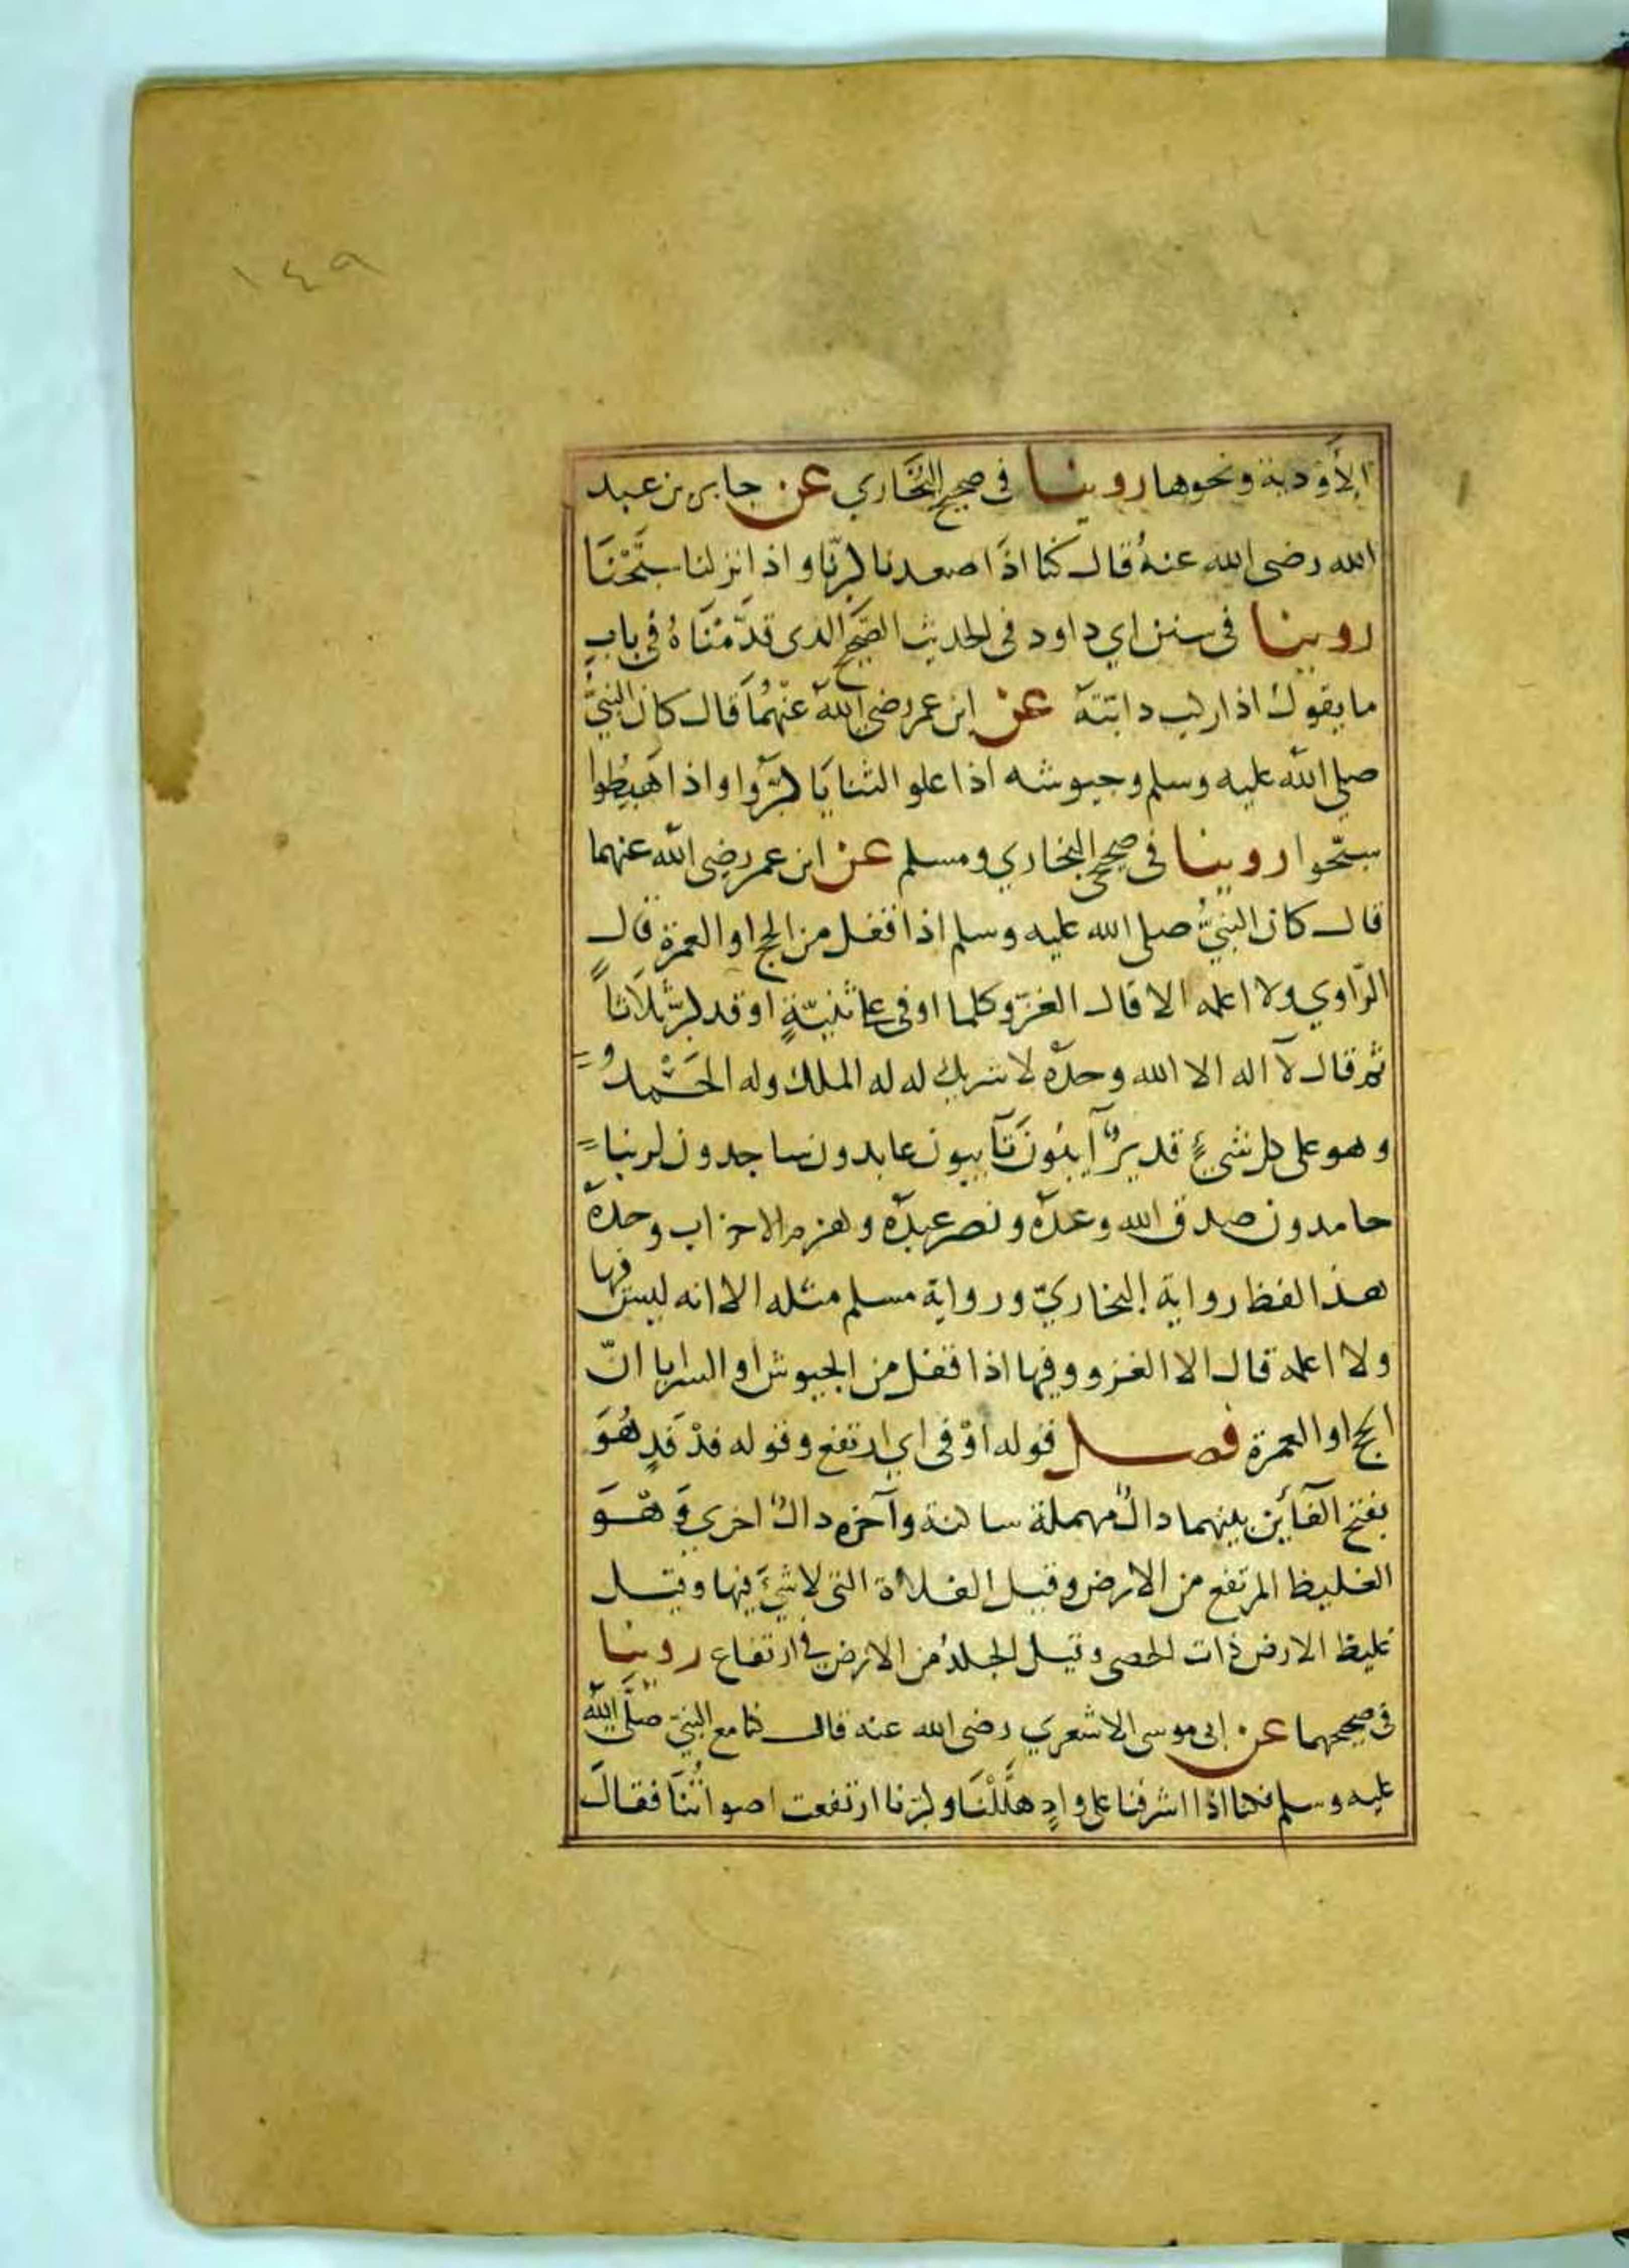 ١٤٩
الأودية ونحوها روينا في صحيح البخاري عن جابر بن عبد
الله رضي الله عنهُ قال كنا اذَا صعدنا كبرّنا واذا نزلنا سبَّحْنَا
روينا في سنن ابي داود في الحديث الصّحيح الذي قدّمْنَاهُ في باب
ما يقول اذا ركب دابّته عن ابن عمر رضي الله عنْهُمَا قال كان النبيُّ
صلي الله عليه وسلم وجيوشه اذا علو الثنايَا كبّروا واذا هَبَطُوا
سبّحوا روينا في صحيحي البخاري ومسلم عنْ ابن عمر رضي الله عنهما
قال كان النبيُّ صلى الله عليه وسلم اذا قفل من الحج او العمرة قال
الرّاوي ولا اعلمه الا قال الغزو كلما اوفى على ثنيّةٍ او فدفد كبّر ثلاثاً
ثم قال لآ اله الا الله وحدَه لا شريك له له الملك وله الحَمْدُ
وهو على كل شيءٍ قديرٌ آيبُونَ تآيبون عابدون ساجدون لربنا
حامدون صدق الله وعدَه ونصر عبدَه وهزم الاحزاب وحدَه
هذا لفظ رواية البخاريّ ورواية مسلم مثله الا انه ليس فيها
ولا اعلمه قال الا الغزو وفيها اذا قفل من الجيوش او السرايا انّ
الحج او العمرة فصل قوله اوْفى اي ارتفع وقوله فدْفَدٍ هُوَ
بفتح الفآئين بينهما دالٌ مهملة ساكنة وآخره دالٌ اخري وَهْوَ
الغليظ المرتفع من الارض وقيل الفلاة التي لا شيءَ فيها وقيل
غليظ الارض ذات الحصى وقيل الجلدُ من الارض في ارتفاع روينا
في صحيحهما عن ابي موسى الاشعري رضي الله عنه قال كنا مع النبيّ صلَّى الله
عليه وسلم فكنا اذا اشرفنا على وادٍ هلَّلْنَا وكبّرنا ارتفعت اصواتُنَا فقالَ